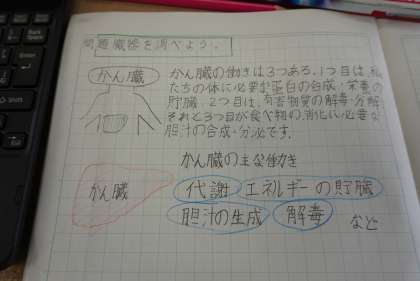 問題 臓器を調べよう。
かん臓
かん臓の働きは3つある。1つ目は、私
たちの体に必要な蛋白の合成・栄養の
貯蔵、2つ目は、有害物質の解毒・分解
それと3つ目が食べ物の消化に必要な
胆汁の合成・分泌です。
かん臓の主な働き
かん臓
代謝 エネルギーの貯臓
胆汁の生成 解毒 など